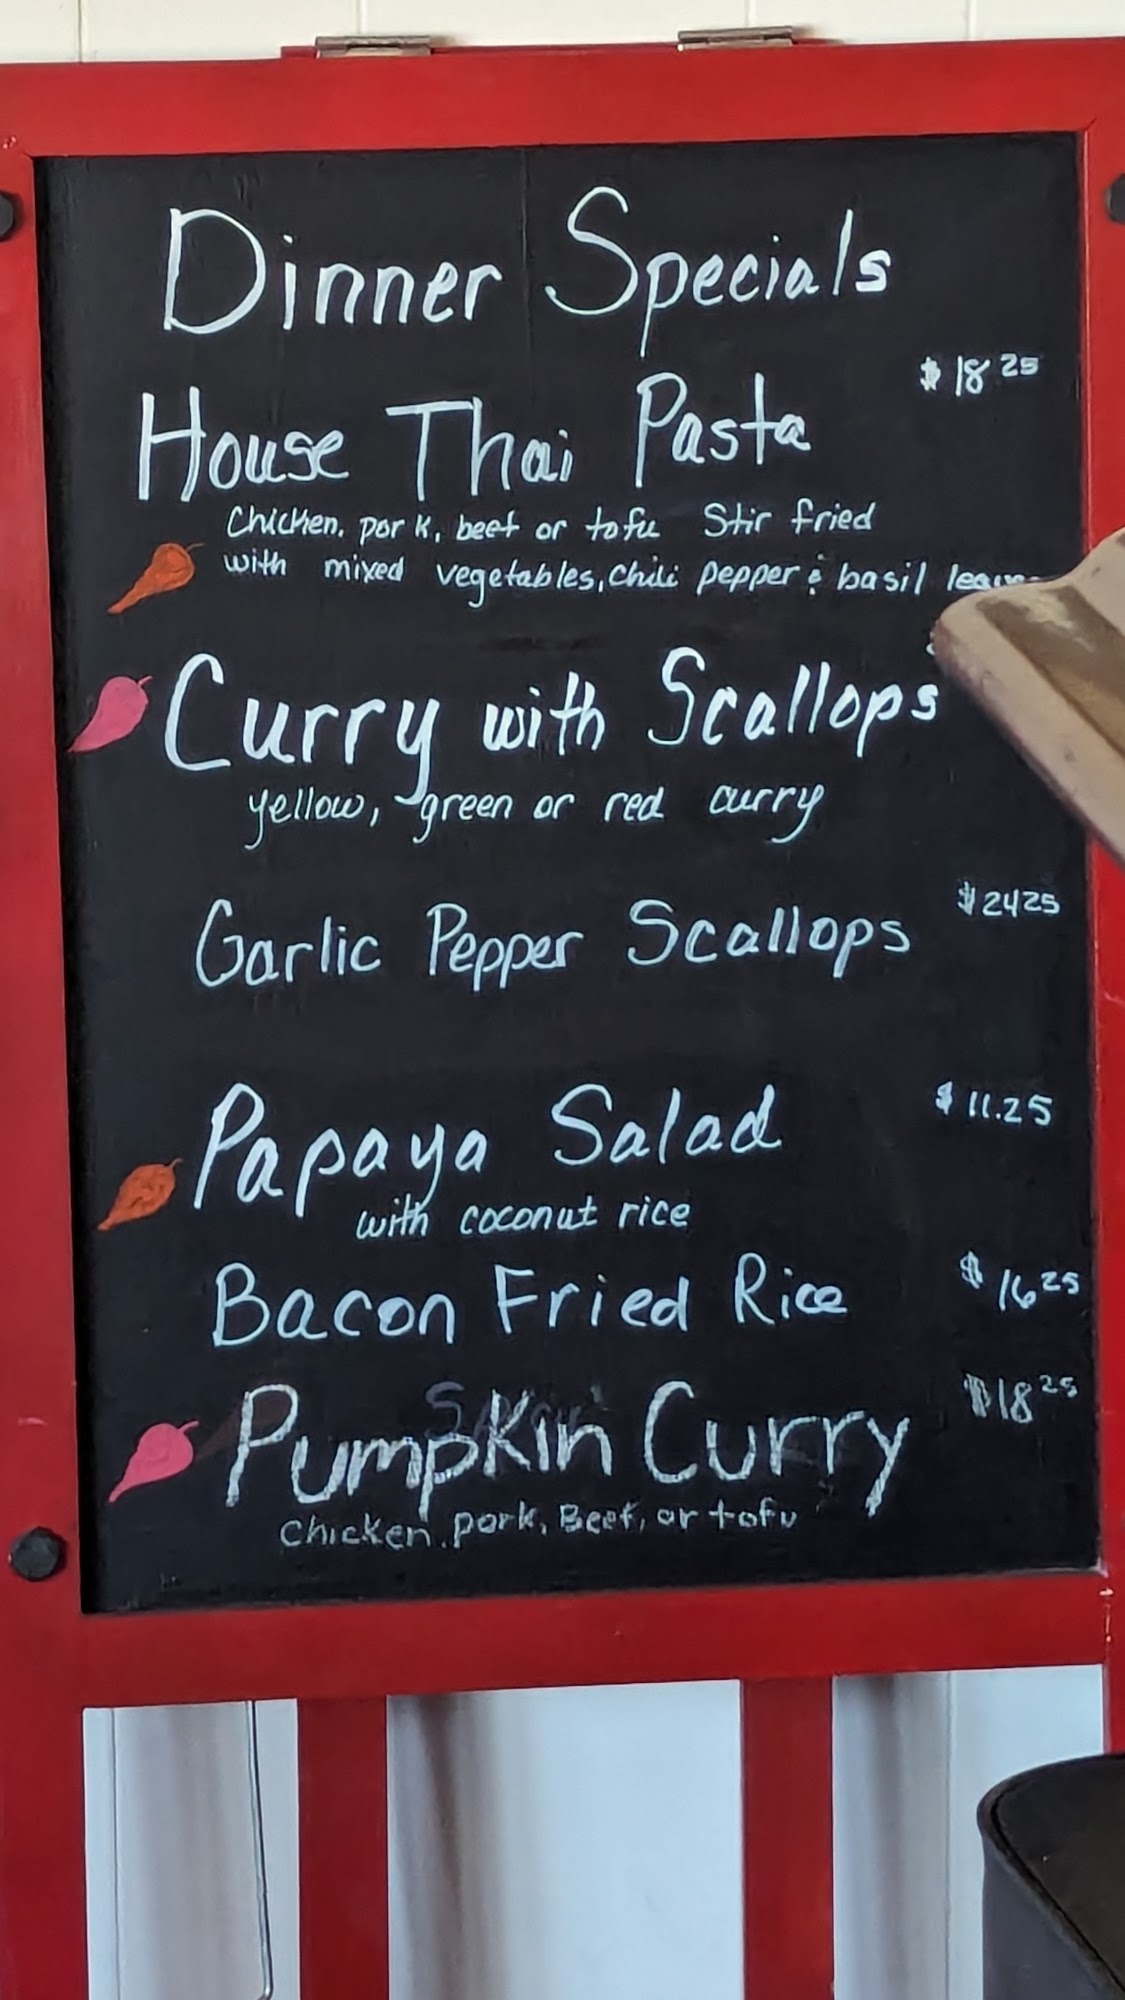 Dinner Specials
$18 25
House Thai Pasta
Chicken, pork, beef or tofu Stir fried
with mixed vegetables, chili pepper & basil
Curry with Scallops
yellow, green or red curry
$24 25
Garlic Pepper Scallops
$11.25
Papaya Salad
with coconut rice
Bacon Fried Rice $16 25
$18 25
Pumpkin Curry
Chicken, pork, Beef, or tofu